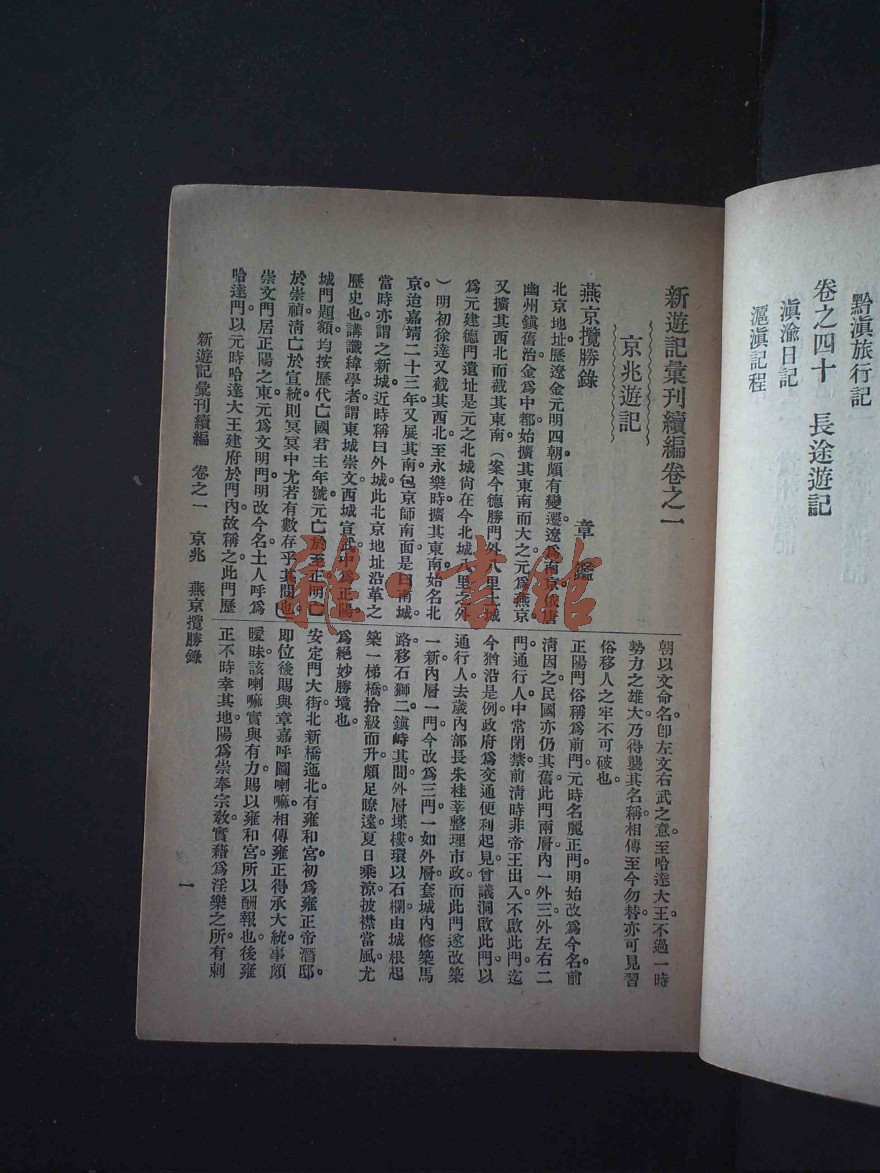 黔滇旅行記
卷之四十　長途遊記
滇渝日記
滬滇記程
新遊記彙刊續編卷之一
京兆遊記
燕京攬勝錄　章　鑑
北京地址歷遼金元明四朝頗有變遷遼爲南京依唐
幽州鎮舊治金爲中都始擴其東南而大之元爲燕京
又擴其西北而截其東南（案今德勝門外八里土城
爲元建德門遺址是元之北城尙在今北城八里之外
）明初徐達又截其西北至永樂時擴其東南始名北
京迨嘉靖二十三年又展其南包京師南面是曰南城
當時亦謂之新城近時稱曰外城此北京地址沿革之
歷史也。講讖緯學者謂東城崇文西城宣武中爲正陽
城門題額均按歷代亡國君主年號元亡於至正明亡
於崇禎淸亡於宣統則冥冥中尤若有數存乎其間也
崇文門居正陽之東元爲文明門明改今名土人呼爲
哈達門以元時哈達大王建府於門內故稱之此門歷
朝以文命名卽左文右武之意至哈達大王不過一時
勢力之雄大乃得襲其名稱相傳至今勿替亦可見習
俗移人之牢不可破也。
正陽門俗稱爲前門元時名麗正門明始改爲今名前
淸因之民國亦仍其舊此門兩層內一外三外左右二
門通行人中常閉禁前淸時非帝王出入不啟此門迄
今猶沿是例政府爲交通便利起見曾議洞啟此門以
通行人去歲內部長朱桂莘整理市政而此門遂改築
一新內層一門今改爲三門一如外層套城內修築馬
路移石獅二鎮峙其間外層堞樓環以石欄由城根起
築一梯橋拾級而升頗足瞭遠夏日乘涼披襟當風尤
爲絕妙勝境也。
安定門大街北新橋迤北有雍和宮初爲雍正帝潛邸
卽位後賜與章嘉呼圖喇嘛相傳雍正得承大統事頗
曖昧該喇嘛實與有力賜以雍和宮所以酬報也後雍
正不時幸其地陽爲崇奉宗敎實藉爲淫樂之所有刺
新遊記彙刊續編　卷之一　京兆　燕京攬勝錄　一
雜·書館